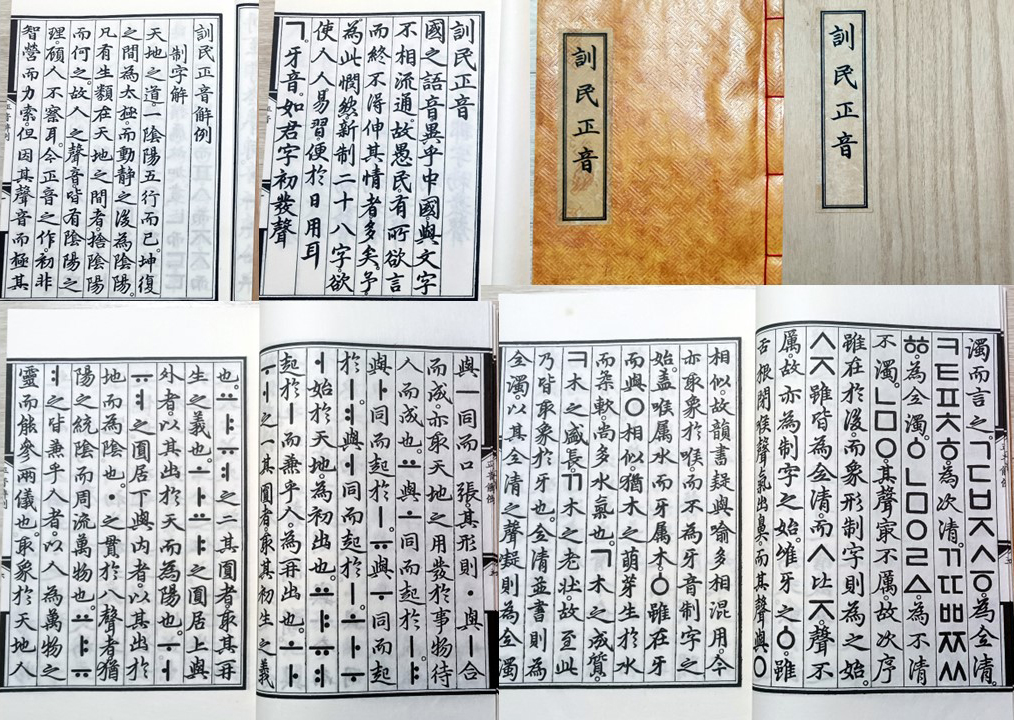 訓民正音解例
制字解
天地之道。一陰陽五行而已。坤復
之間為太極。而動靜之後為陰陽。
凡有生類在天地之間者。捨陰陽
而何之。故人之聲音。皆有陰陽之
理。顧人不察耳。今正音之作。初非
智營而力索。但因其聲音而極其
訓民正音
國之語音。異乎中國。與文字
不相流通。故愚民。有所欲言
而終不得伸其情者多矣。予
為此憫然。新制二十八字。欲
使人人易習。便於日用耳
ㄱ。牙音。如君字初發聲
訓民正音
訓民正音
與ㅡ同而口張。其形則ㆍ與ㅣ合
而成。亦取天地之用發於事物待
人而成也。ㅛ與ㅗ同而起於ㅣ。ㅑ
與ㅏ同而起於ㅣ。ㅠ與ㅜ同而起
於ㅣ。ㅕ與ㅓ同而起於ㅣ。ㅗㅏㅜ
ㅓ始於天地。為初出也。ㅛㅑㅠㅕ
起於ㅣ而兼乎人。為再出也。ㅗㅏ
ㅜㅓ之一其圓者。取其初生之義
也。ㅛㅑㅠㅕ之二其圓者。取其再
生之義也。ㅗㅏㅛㅑ之圓居上與
外者。以其出於天而為陽也。ㅜㅓ
ㅠㅕ之圓居下與內者。以其出於
地而為陰也。ㆍ之貫於八聲者。猶
陽之統陰而周流萬物也。ㅛㅑㅠ
ㅕ之皆兼乎人者。以人為萬物之
靈而能參兩儀也。取象於天地人
濁而言之。ㄱㄷㅂㅈㅅㆆ。為全清。
ㅋㅌㅍㅊㅎ。為次清。ㄲㄸㅃㅉㅆ
ㆅ。為全濁。ㆁㄴㅁㅇㄹㅿ。為不清
不濁。ㄴㅁㅇ。其聲冣不厲。故次序
雖在於後。而象形制字則為之始。
ㅅㅈ雖皆為全清。而ㅅ比ㅈ。聲不
厲。故亦為制字之始。唯牙之ㆁ。雖
舌根閉喉聲氣出鼻。而其聲與ㅇ
相似。故韻書疑與喩多相混用。今
亦取象於喉。而不為牙音制字之
始。盖喉屬水而牙屬木。ㆁ雖在牙
而與ㅇ相似。猶木之萌芽生於水
而柔軟。尚多水氣也。ㄱ木之成質。
ㅋ木之盛長。ㄲ木之老壯。故至此
乃皆取象於牙也。全清並書則為
全濁。以其全清之聲凝則為全濁